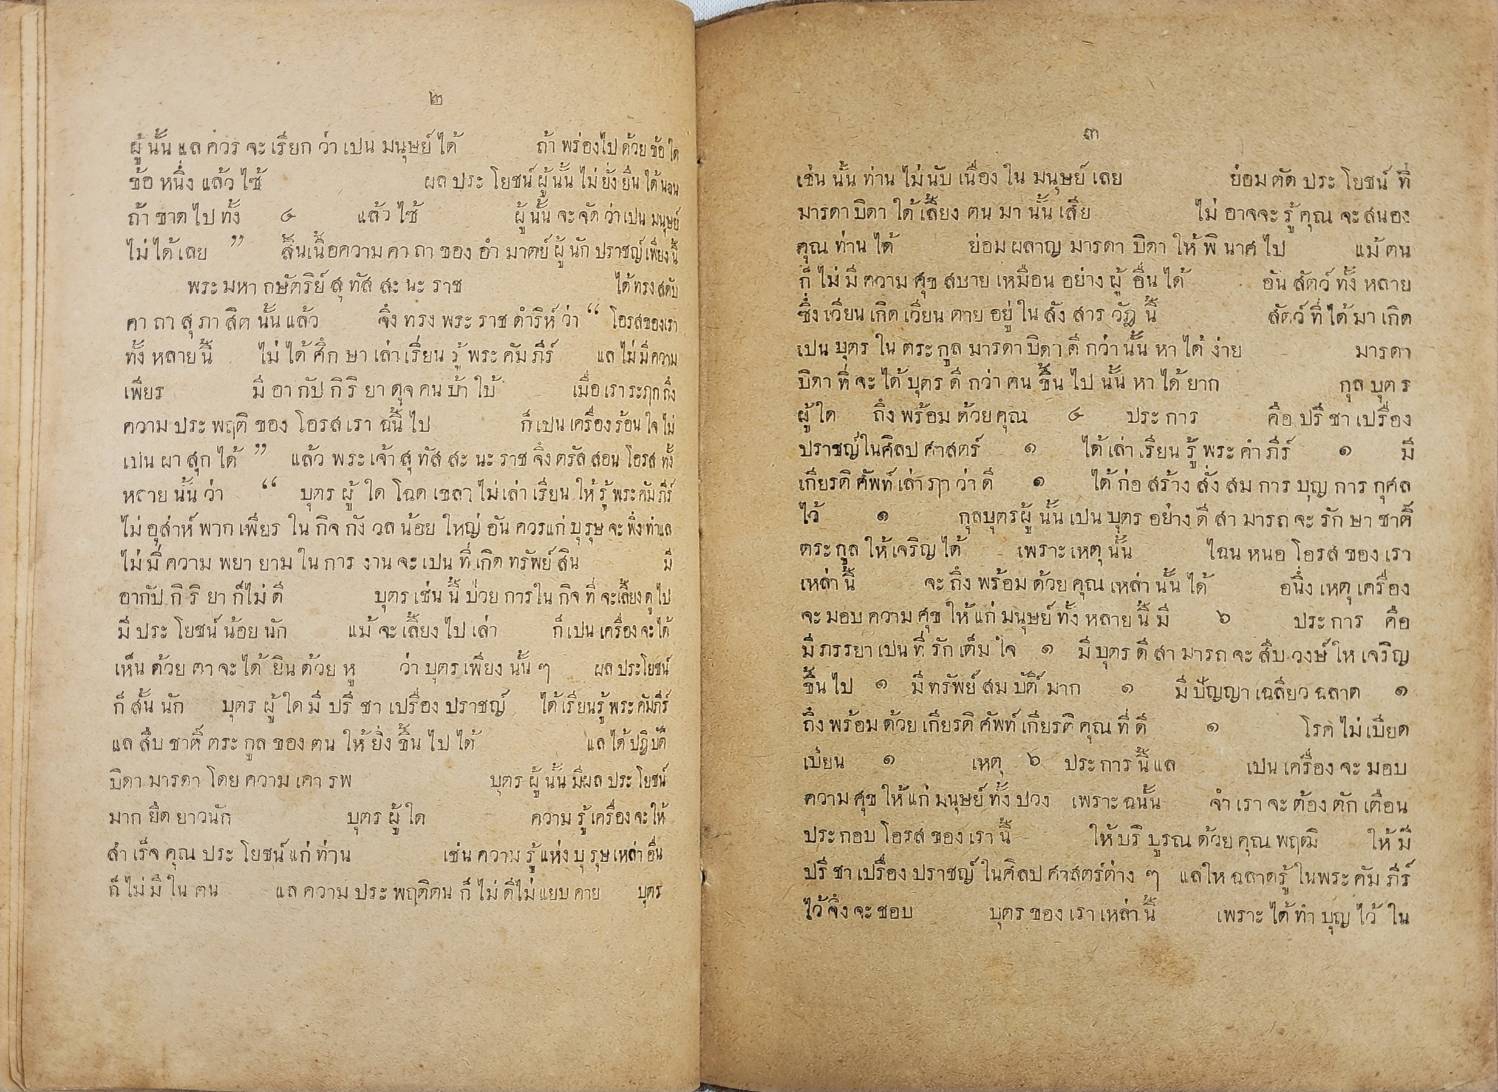 ๒
ผู้นั้นแลควรจะเรียกว่าเปนมนุษย์ได้ ถ้าพร่องไปด้วยข้อใด
ข้อหนึ่งแล้วไซ้ ผลประโยชน์ผู้นั้นไม่ยั่งยืนได้นาน
ถ้าขาดไปทั้ง ๔ แล้วไซ้ ผู้นั้นจะจัดว่าเปนมนุษย์
ไม่ได้เลย ” สิ้นเนื้อความคาถาของอำมาตย์ผู้นักปราชญ์เพียงนี้
พระมหากษัตริย์สุทัสสะนะราช ได้ทรงสดับ
คาถาสุภาสิตนั้นแล้ว จึ่งทรงพระราชดำริห์ว่า “ โอรสของเรา
ทั้งหลายนี้ ไม่ได้ศึกษาเล่าเรียนรู้พระคัมภีร์ แลไม่มีความ
เพียร มีอากัปกิริยาดุจคนบ้าใบ้ เมื่อเราระฦกถึง
ความประพฤติของโอรสเราฉนี้ไป ก็เปนเครื่องร้อนใจไม่
เปนผาสุกได้ ” แล้วพระเจ้าสุทัสสะนะราชจึ่งตรัสสอนโอรสทั้ง
หลายนั้นว่า “ บุตรผู้ใดโฉดเขลาไม่เล่าเรียนให้รู้พระคัมภีร์
ไม่อุส่าห์พากเพียรในกิจกังวลน้อยใหญ่อันควรแก่บุรุษจะพึ่งทำแล
ไม่มีความพยายามในการงานจะเปนที่เกิดทรัพย์สิน มี
อากัปกิริยาก็ไม่ดี บุตรเช่นนี้ป่วยการในกิจที่จะเลี้ยงดูไป
มีประโยชน์น้อยนัก แม้จะเลี้ยงไปเล่า ก็เปนเครื่องจะได้
เห็นด้วยตาจะได้ยินด้วยหู ว่าบุตรเพียงนั้นๆ ผลประโยชน์
ก็สั้นนัก บุตรผู้ใดมีปรีชาเปรื่องปราชญ์ ได้เรียนรู้พระคัมภีร์
แลสืบชาติ์ตระกูลของตนให้ยิ่งขึ้นไปได้ แลได้ปฏิบัติ
บิดามารดาโดยความเคารพ บุตรผู้นั้นมีผลประโยชน์
มากยืดยาวนัก บุตรผู้ใด ความรู้เครื่องจะให้
สำเร็จคุณประโยชน์แก่ท่าน เช่นความรู้แห่งบุรุษเหล่าอื่น
ก็ไม่มีในตน แลความประพฤติตนก็ไม่ดีไม่แยบคาย บุตร
๓
เช่นนั้นท่านไม่นับเนื่องในมนุษย์เลย ย่อมตัดประโยชน์ที่
มารดาบิดาได้เลี้ยงตนมานั้นเสีย ไม่อาจจะรู้คุณจะสนอง
คุณท่านได้ ย่อมผลาญมารดาบิดาให้พินาศไป แม้ตน
ก็ไม่มีความศุขสบายเหมือนอย่างผู้อื่นได้ อันสัตว์ทั้งหลาย
ซึ่งเวียนเกิดเวียนตายอยู่ในสังสารวัฏนี้ สัตว์ที่ได้มาเกิด
เปนบุตรในตระกูลมารดาบิดาดีกว่านั้นหาได้ง่าย มารดา
บิดาที่จะได้บุตรดีกว่าตนขึ้นไปนั้นหาได้ยาก กุลบุตร
ผู้ใด ถึงพร้อมด้วยคุณ ๔ ประการ คือปรีชาเปรื่อง
ปราชญ์ในศิลปศาสตร์ ๑ ได้เล่าเรียนรู้พระคำภีร์ ๑ มี
เกียรติศัพท์เล่าฦาว่าดี ๑ ได้ก่อสร้างสั่งสมการบุญการกุศล
ไว้ ๑ กุลบุตรผู้นั้นเปนบุตรอย่างดีสามารถจะรักษาชาติ์
ตระกูลให้เจริญได้ เพราะเหตุนั้น ไฉนหนอโอรสของเรา
เหล่านี้ จะถึงพร้อมด้วยคุณเหล่านั้นได้ อนึ่งเหตุเครื่อง
จะมอบความศุขให้แก่มนุษย์ทั้งหลายนี้มี ๖ ประการ คือ
มีภรรยาเปนที่รักเต็มใจ ๑ มีบุตรดีสามารถจะสืบวงษ์ให้เจริญ
ขึ้นไป ๑ มีทรัพย์สมบัติ์มาก ๑ มีปัญญาเฉลียวฉลาด ๑
ถึงพร้อมด้วยเกียรติศัพท์เกียรติคุณที่ดี ๑ โรคไม่เบียด
เบียน ๑ เหตุ ๖ ประการนี้แล เปนเครื่องจะมอบ
ความศุขให้แก่มนุษย์ทั้งปวง เพราะฉนั้น จำเราจะต้องตักเตือน
ประกอบโอรสของเรานี้ ให้บริบูรณด้วยคุณพฤฒิ ให้มี
ปรีชาเปรื่องปราชญ์ในศิลปศาสตร์ต่างๆ แลให้ฉลาดรู้ในพระคัมภีร์
ไว้จึ่งจะชอบ บุตรของเราเหล่านี้ เพราะได้ทำบุญไว้ใน